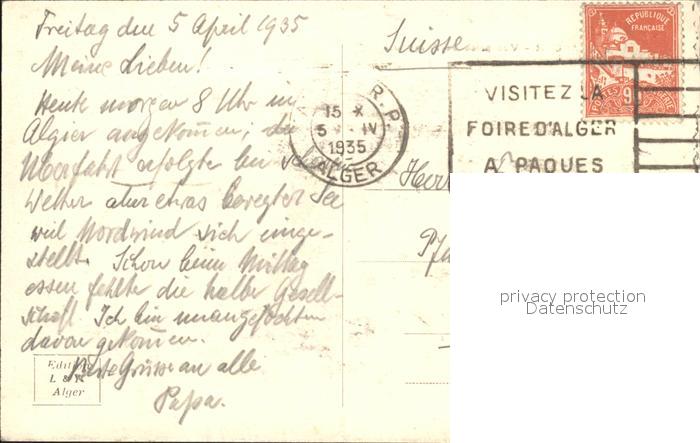 Freitag den 5 April 1935
Meine Lieben!
Heute morgen 8 Uhr in
Algier angekommen, die
Überfahrt erfolgte bei
Wetter aber etwas bewegter See
weil Nordwind sich einge-
stellt. Schon beim Mittag
essen fehlte die halbe Gesell-
schaft. Ich bin unangefochten
davon gekommen.
Beste Grüsse an alle
Papa.
Editi
L & Y
Alger
Suisse
R.P.
15 X
5 IV
1935
ALGER
VISITEZ LA
FOIRE D'ALGER
A PAQUES
REPUBLIQUE
FRANÇAISE
POSTES
Herr
privacy protection
Datenschutz